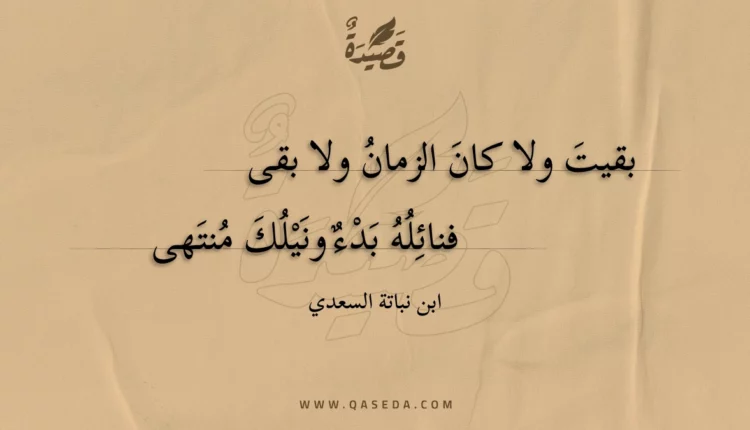 قَصِيْدَةٌ
بقيتَ ولا كانَ الزمانُ ولا بقى
فنائِلُهُ بَدْءٌ ونَيْلُكَ مُنتَهى
ابن نباتة السعدي
WWW.QASEDA.COM